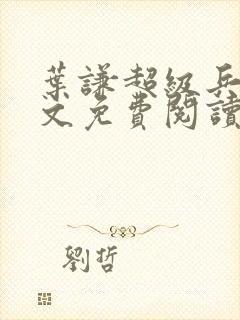 葉謙超級兵
文免費閱讀
劉哲